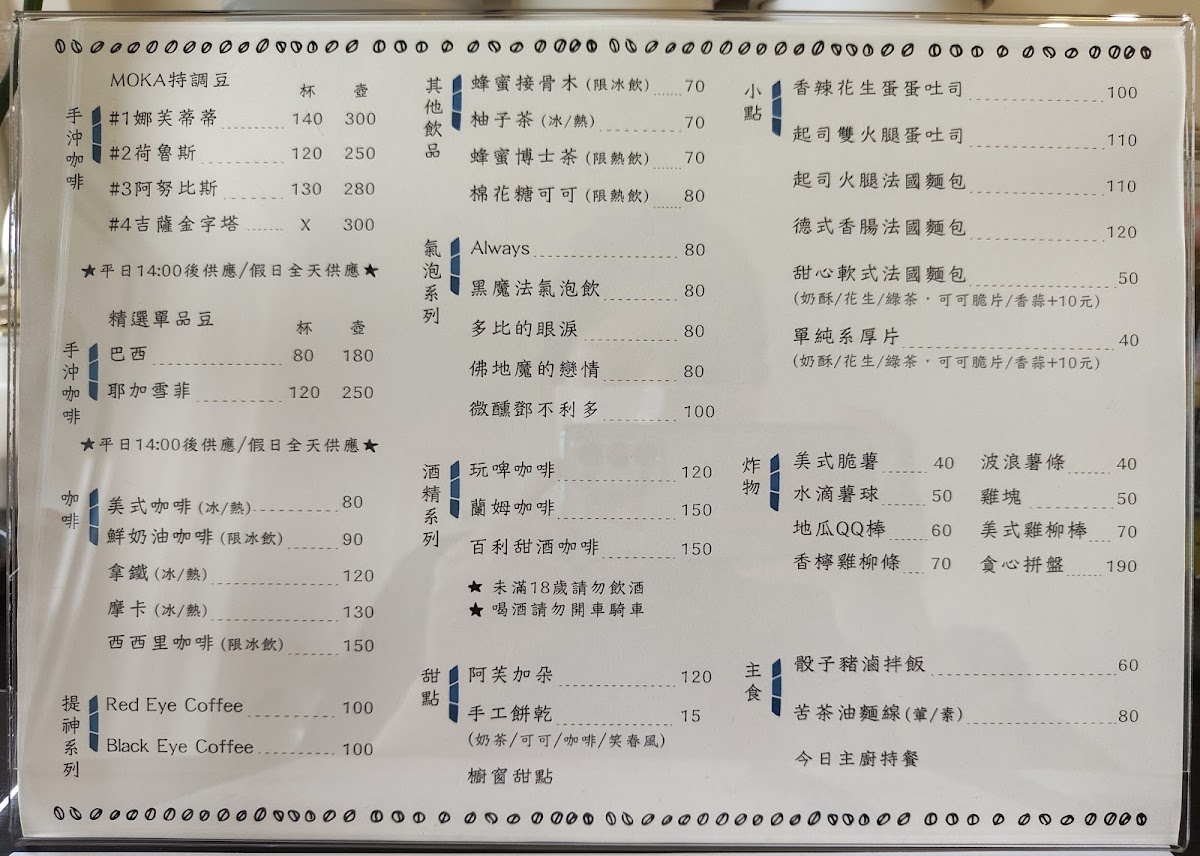 手沖咖啡
MOKA特調豆 杯 壺
#1娜芙蒂蒂 140 300
#2荷魯斯 120 250
#3阿努比斯 130 280
#4吉薩金字塔 X 300
★平日14:00後供應/假日全天供應★
手沖咖啡
精選單品豆 杯 壺
巴西 80 180
耶加雪菲 120 250
★平日14:00後供應/假日全天供應★
咖啡
美式咖啡(冰/熱) 80
鮮奶油咖啡(限冰飲) 90
拿鐵(冰/熱) 120
摩卡(冰/熱) 130
西西里咖啡(限冰飲) 150
提神系列
Red Eye Coffee 100
Black Eye Coffee 100
其他飲品
蜂蜜接骨木(限冰飲) 70
柚子茶(冰/熱) 70
蜂蜜博士茶(限熱飲) 70
棉花糖可可(限熱飲) 80
氣泡系列
Always 80
黑魔法氣泡飲 80
多比的眼淚 80
佛地魔的戀情 80
微醺鄧不利多 100
酒精系列
玩啤咖啡 120
蘭姆咖啡 150
百利甜酒咖啡 150
★ 未滿18歲請勿飲酒
★ 喝酒請勿開車騎車
甜點
阿芙加朵 120
手工餅乾 15
(奶茶/可可/咖啡/笑春風)
櫥窗甜點
小點
香辣花生蛋蛋吐司 100
起司雙火腿蛋吐司 110
起司火腿法國麵包 110
德式香腸法國麵包 120
甜心軟式法國麵包 50
(奶酥/花生/綠茶，可可脆片/香蒜+10元)
單純系厚片 40
(奶酥/花生/綠茶，可可脆片/香蒜+10元)
炸物
美式脆薯 40 波浪薯條 40
水滴薯球 50 雞塊 50
地瓜QQ棒 60 美式雞柳棒 70
香檸雞柳條 70 貪心拼盤 190
主食
骰子豬滷拌飯 60
苦茶油麵線(葷/素) 80
今日主廚特餐